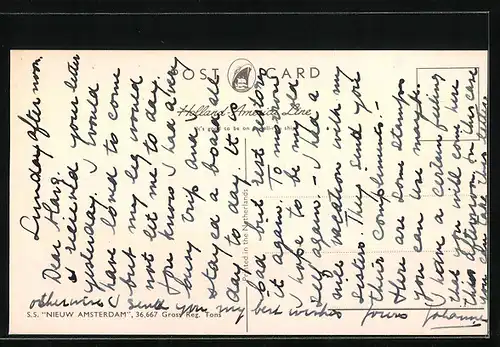 POST CARD
Holland-America Line
"It's good to be on a well-run ship"
Sunday after noon.
Dear
I received your letter
yesterday. I would
have loved to come
but my leg would
not let me to day.
You know I had a very
busy trip and
stayed a board all
day to day. It is
bad but rest restores
it again. To morrow
I hope to be my
self again. - I had a
nice vacation with my
sisters. They send you
their compliments. -
Here are some stamps
you can use maybe.
I have a certain feeling
that you will come here
this afternoon, in this case
you can take this letter
otherwise I send you my best wishes
Yours Johanna
Printed in the Netherlands
S.S. "NIEUW AMSTERDAM", 36,667 Gross Reg. Tons